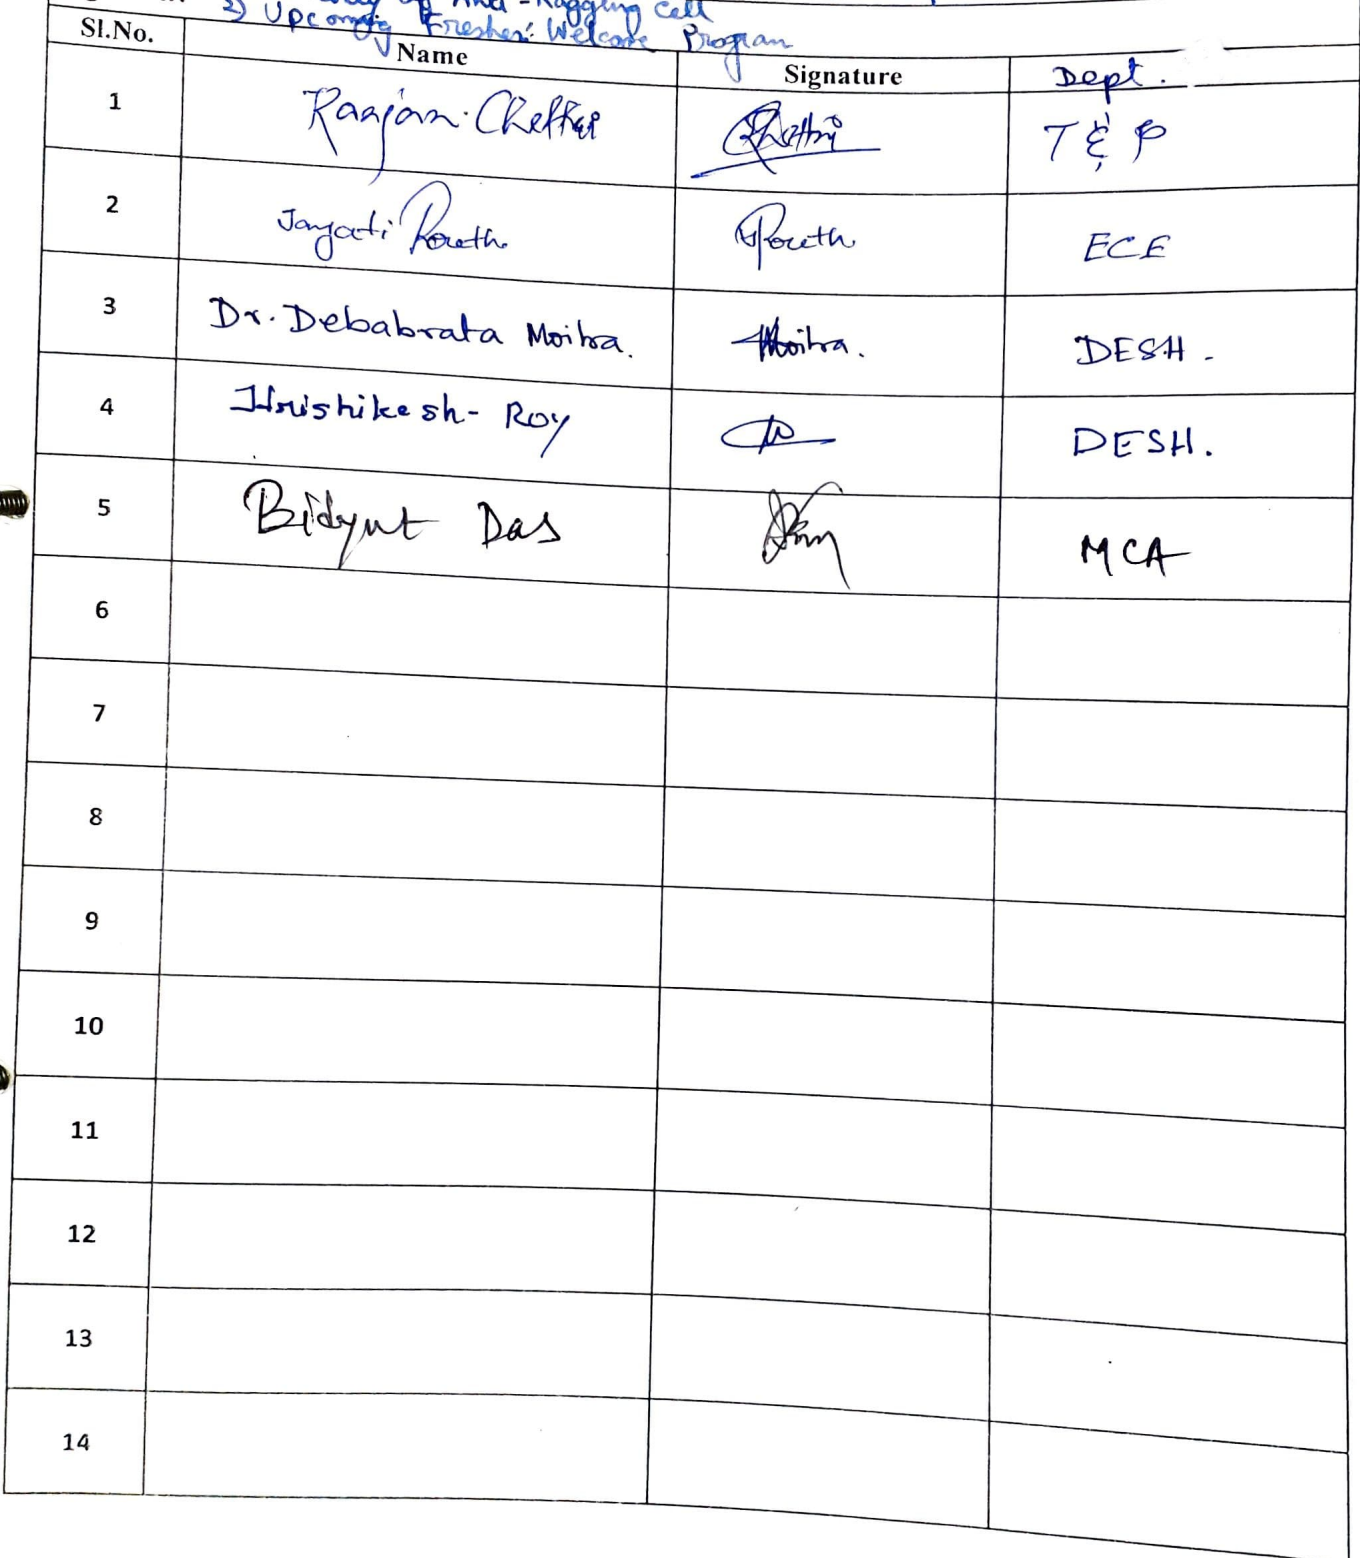 of Anti-Ragging Cell
2) Upcoming Freshers' Welcome Program
Sl.No. Name Signature Dept.
1 Raajan Chettri Chettri T & P
2 Jayati Routh Routh ECE
3 Dr. Debabrata Moitra. Moitra. DESH.
4 Hrishikesh Roy DESH.
5 Bidyut Das MCA
6
7
8
9
10
11
12
13
14